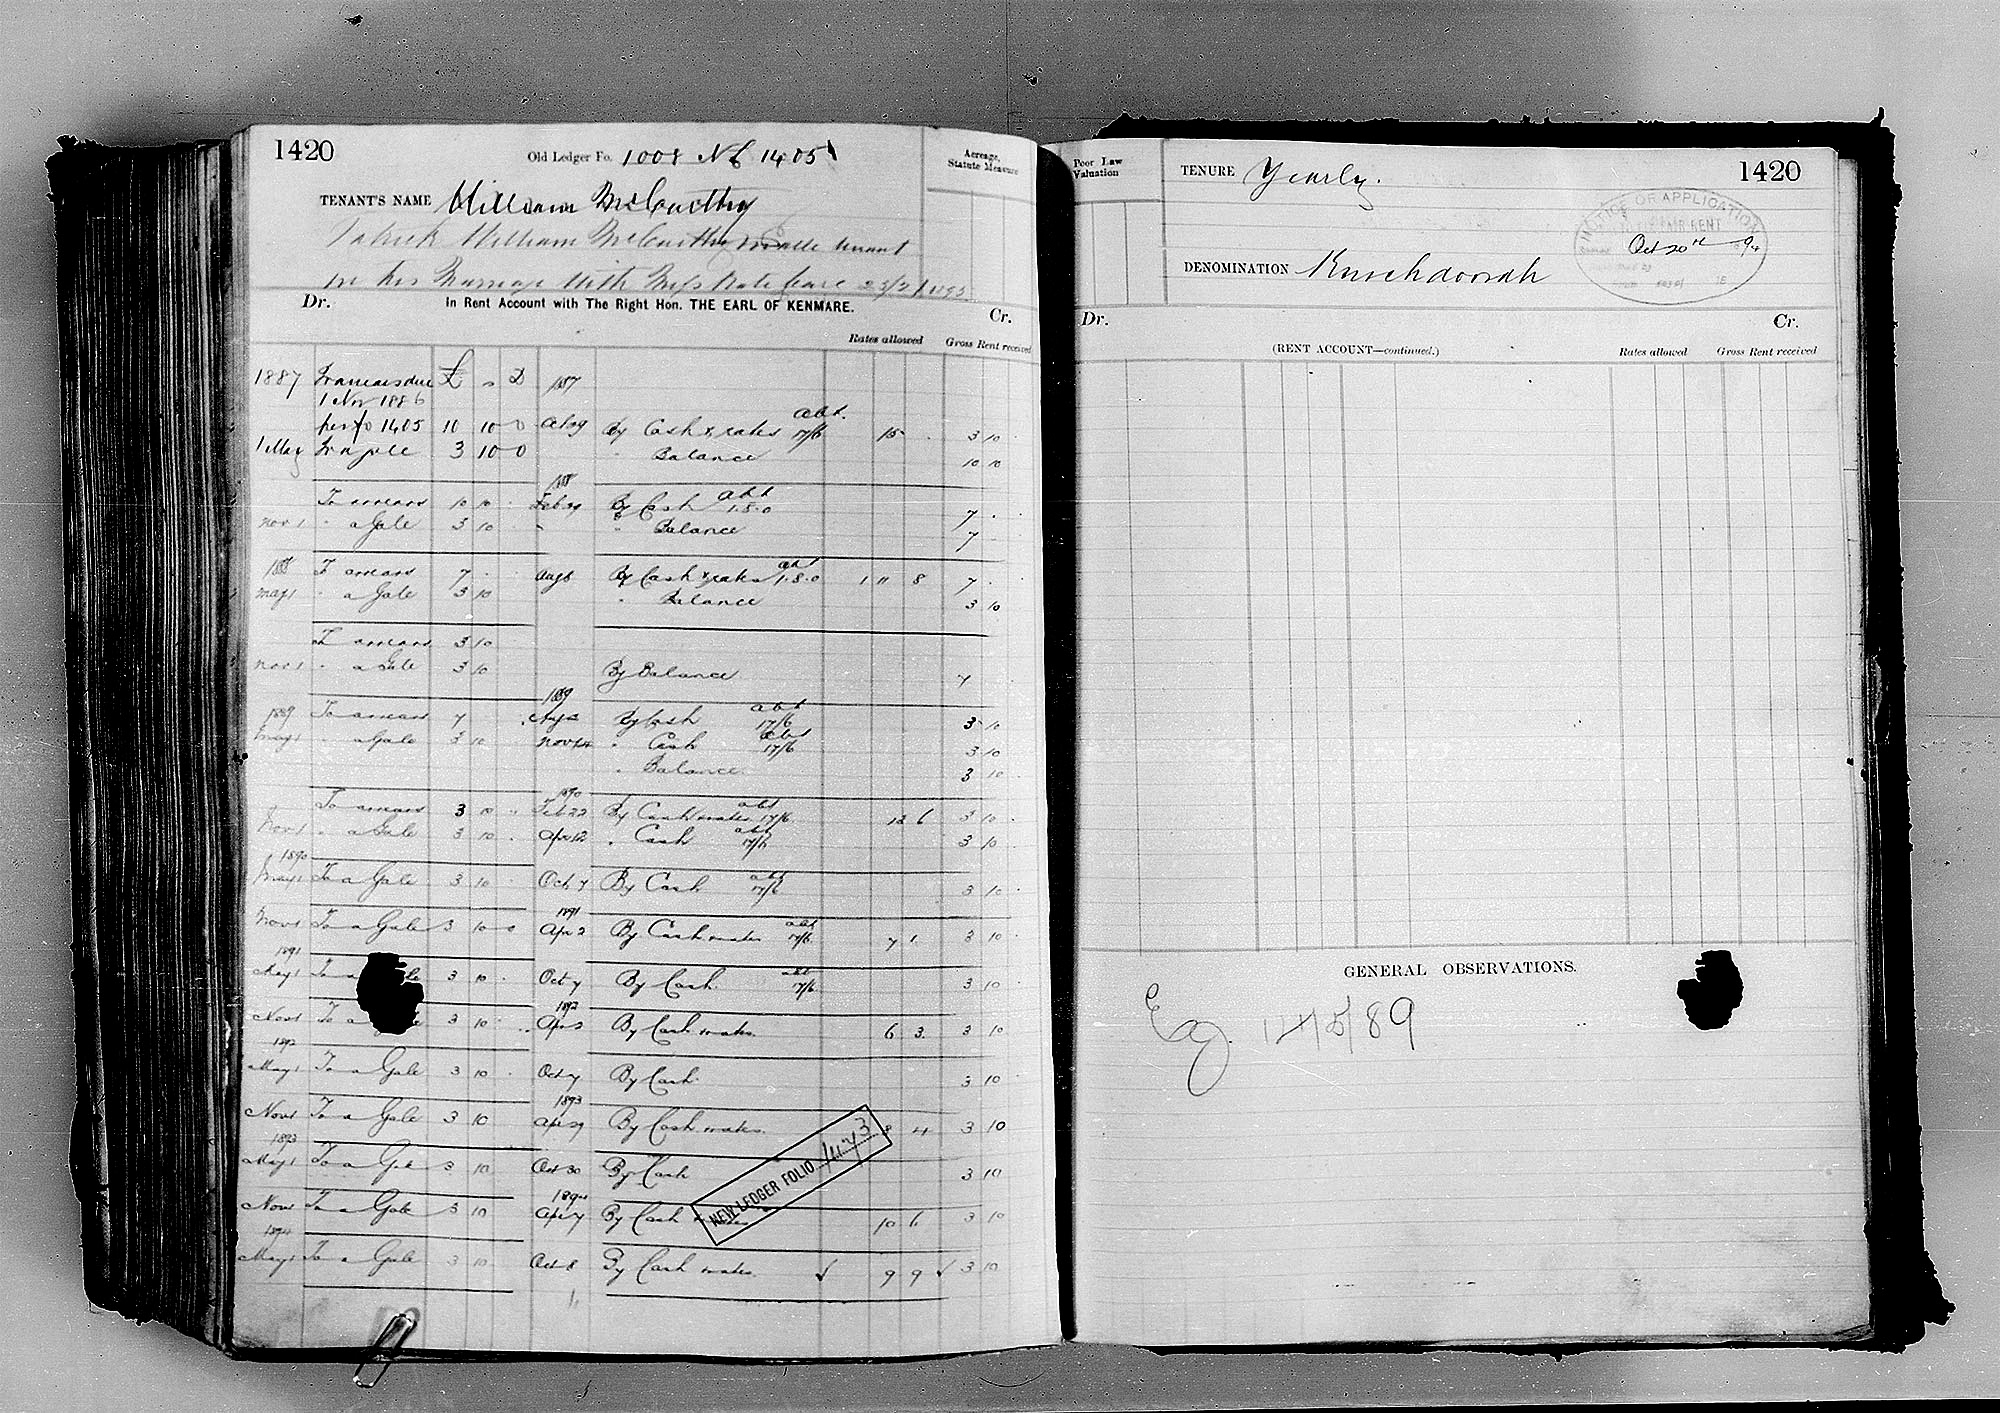 1420
Old Ledger Fo. 1008 NL 1405
Acreage, Statute Measure
TENANT'S NAME William McCarthy
Patrick William McCarthy made tenant
on his Marriage with Miss Kate 23/2/1895
Dr. In Rent Account with The Right Hon. THE EARL OF KENMARE. Cr.
Rates allowed Gross Rent received
1887 To arrears due £ s D 1887
1 Nov 1886
per fo 1405 10 10 0 Aug By Cash & rates abt. 17/6 15 . 3 10 .
1 May To a gale 3 10 0 " Balance 10 10
1888
To arrears 10 10 . Feb 29 By Cash abt 1.8.0 7 .
Nov 1 " a Gale 3 10 " " Balance 7 -
1888 To arrears 7 . . Aug 6 By Cash & rates abt 1.8.0 1 11 8 7 . .
May 1 " a Gale 3 10 " Balance 3 10
To arrears 3 10
Nov 1 " a Gale 3 10 By Balance 7
1889
1889 To arrears 7 Aug 2 By Cash abt 17/6 3 10
May 1 " a Gale 3 10 Nov 14 " Cash abt 17/6 3 10
" Balance 3 10
1890
To arrears 3 10 " Feb 22 By Cash & rates abt 17/6 12 6 3 10 .
Nov 1 " a Gale 3 10 . Apr 12 " Cash abt 17/6 3 10 .
1890
May 1 To a Gale 3 10 . Oct 7 By Cash abt 17/6 3 10 .
1891
Nov 1 To a Gale 3 10 0 Apr 2 By Cash & rates abt 17/6 7 1 3 10
1891
May 1 To a le 3 10 . Oct 7 By Cash abt 17/6 3 10
1892
Nov 1 To a 3 10 . Apr 2 By Cash & rates 6 3 3 10
1892
May 1 To a Gale 3 10 . Oct 7 By Cash 3 10
1893
Nov 1 To a Gale 3 10 Apr 29 By Cash & rates 8 4 3 10
1893
May 1 To a Gale 3 10 Oct 30 By Cash 3 10
1894
Nov 1 To a Gale 3 10 Apr 7 By Cash & rates 10 6 3 10
1894
May 1 To a Gale 3 10 Oct 8 By Cash & rates 9 9 3 10
NEW LEDGER FOLIO 1473
Poor Law Valuation
TENURE Yearly.
1420
NOTICE OF APPLICATION
FAIR RENT
Oct 20th 94
DENOMINATION Knockdoorah
Dr. Cr.
(RENT ACCOUNT—continued.) Rates allowed Gross Rent received
GENERAL OBSERVATIONS.
14/5/89